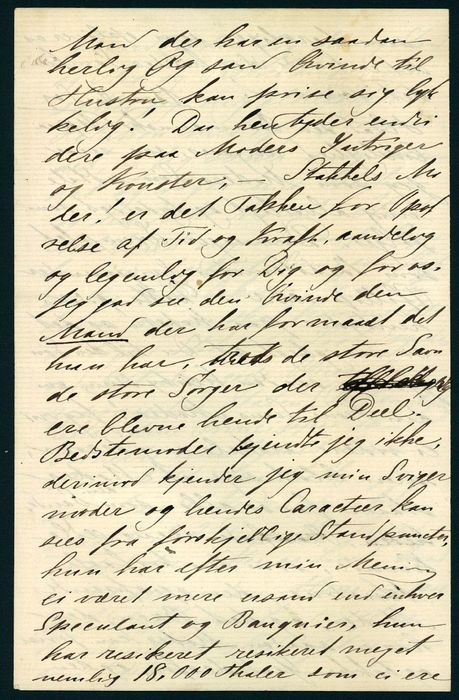 Mand der har en saadan
herlig og sand Qvinde til
Hustru kan prise sig lyk
kelig! Du hentyder endvi
dere paa Moders Intriger
og Konster, — Stakkels Mo
der! er det Takken for Opof
relse af Tid og Kraft, aandelig
og legemlig for Dig og for os.
Jeg gad see den Qvinde den
Mand der har formaaet det
hun har, trods de store Savn
de store Sorger der
ere blevne hende til Deel.
Bedstemoder kjendte jeg ikke,
derimod kjender jeg min Sviger
moder og hendes Caracteer kan
sees fra forskjellige Standpuncter,
hun har efter min Mening
ei været mere usand end enhver
Speculant og Banquier, hun
har resikeret resikeret meget
nemlig 18,000 Thaler som ei ere